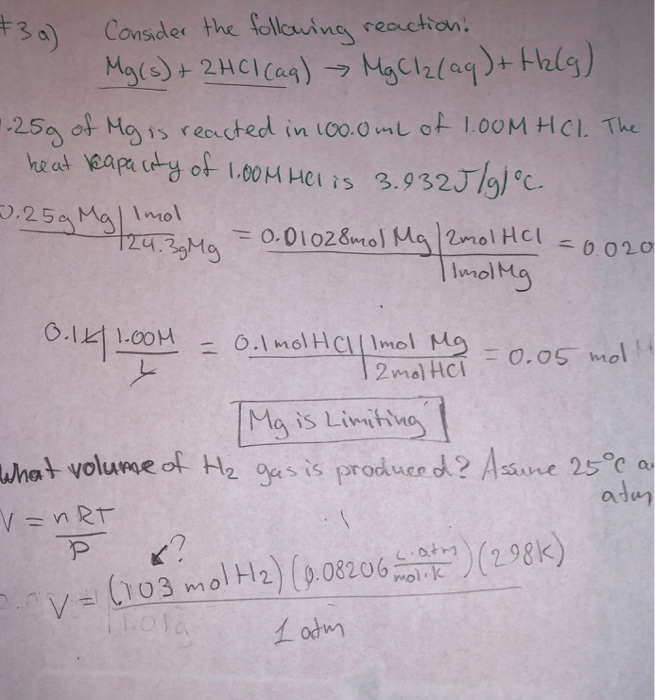 #3a) Consider the following reaction:
Mg(s) + 2HCl(aq) → MgCl2(aq) + H2(g)
.25g of Mg is reacted in 100.0mL of 1.00M HCl. The
heat capacity of 1.00M HCl is 3.932J/g/°C.
0.25g Mg | 1mol = 0.01028mol Mg | 2mol HCl = 0.020
24.3gMg 1molMg
0.1L | 1.00M = 0.1molHCl | 1mol Mg = 0.05 mol
L 2molHCl
Mg is Limiting
What volume of H2 gas is produced? Assume 25°C a
atm
V = nRT
P
?
V = (.103 molH2)(0.08206 L·atm/mol·K)(298K)
1 atm